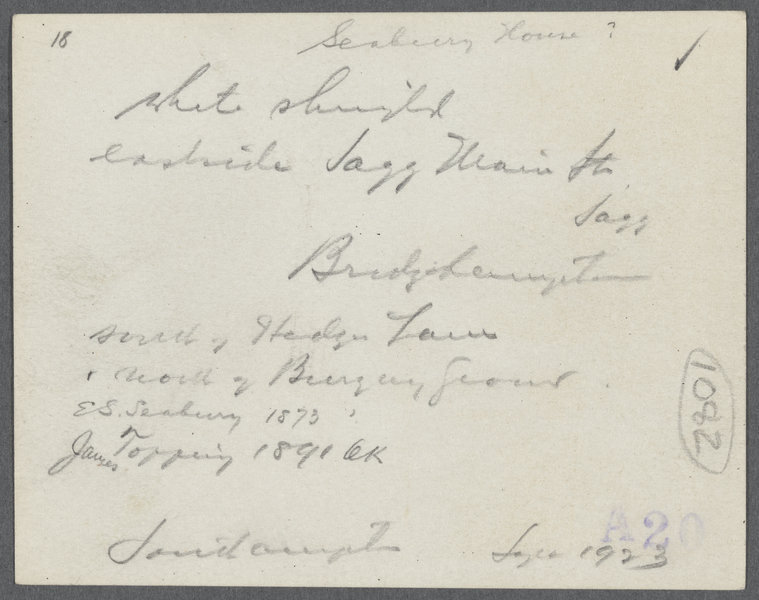 18
Seabury House ?
white shingled
eastside Sagg Main St.
Sagg
Bridgehampton
south of Hedges Lane
& north of Burying Ground
E.S. Seabury 1873
James Topping 1891 OK
1092
A20
Southampton Sept 1923